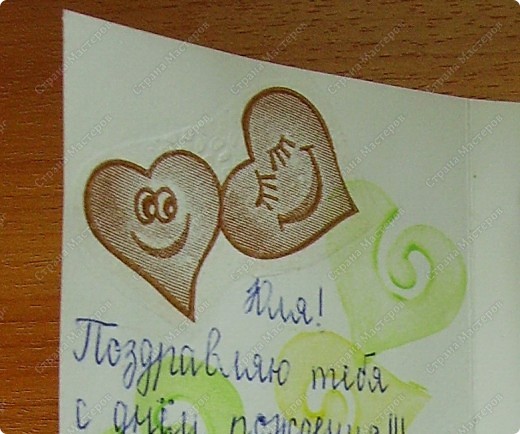 Юля!
Поздравляю тебя
с днём рождения!!!